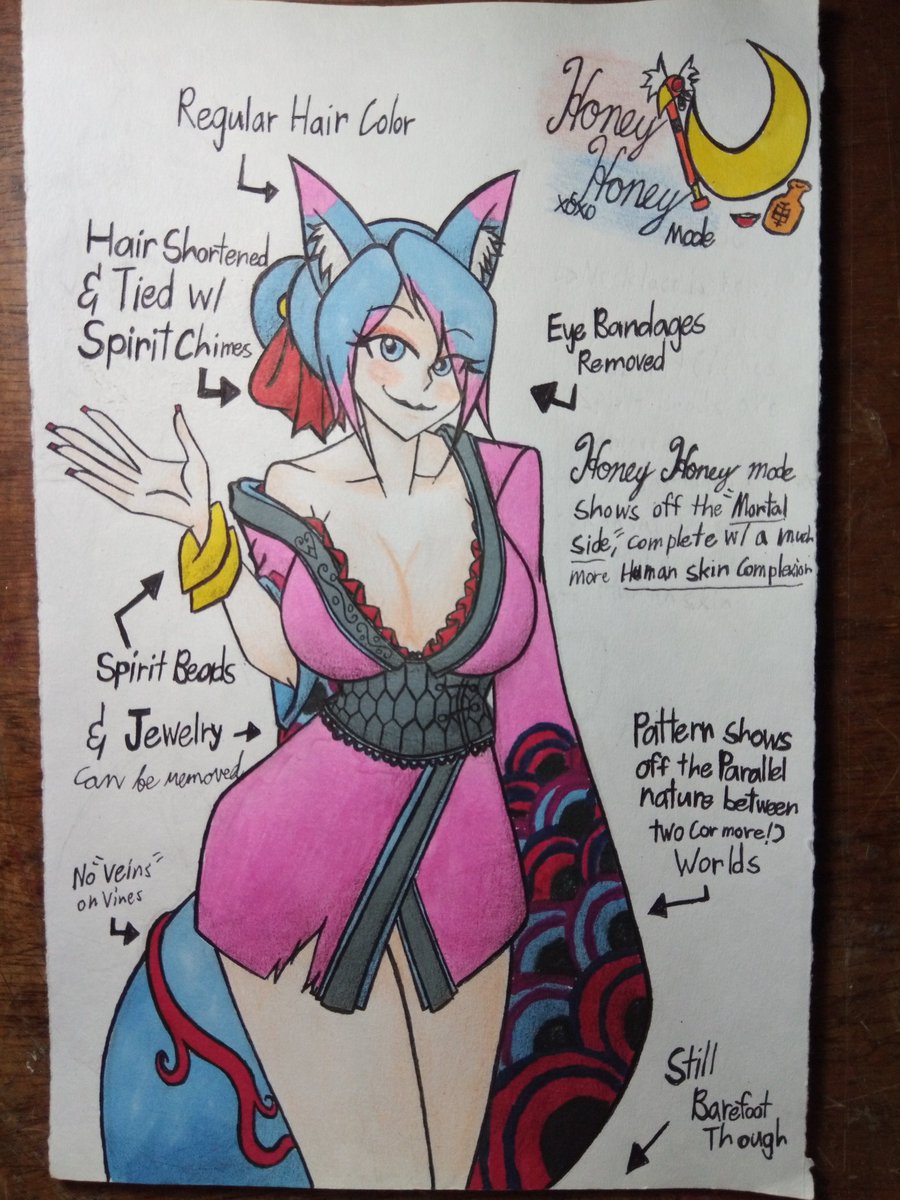 Regular Hair Color
Honey
Honey
xoxo
Mode
Hair Shortened
& Tied w/
Spirit Chimes
Eye Bandages
Removed
Honey Honey mode
shows off the "Mortal
side," complete w/ a much
more Human skin Complexion
Spirit Beads
& Jewelry
can be removed
Pattern shows
off the Parallel
nature between
two (or more!)
Worlds
No "Veins"
on Vines
Still
Barefoot
Though